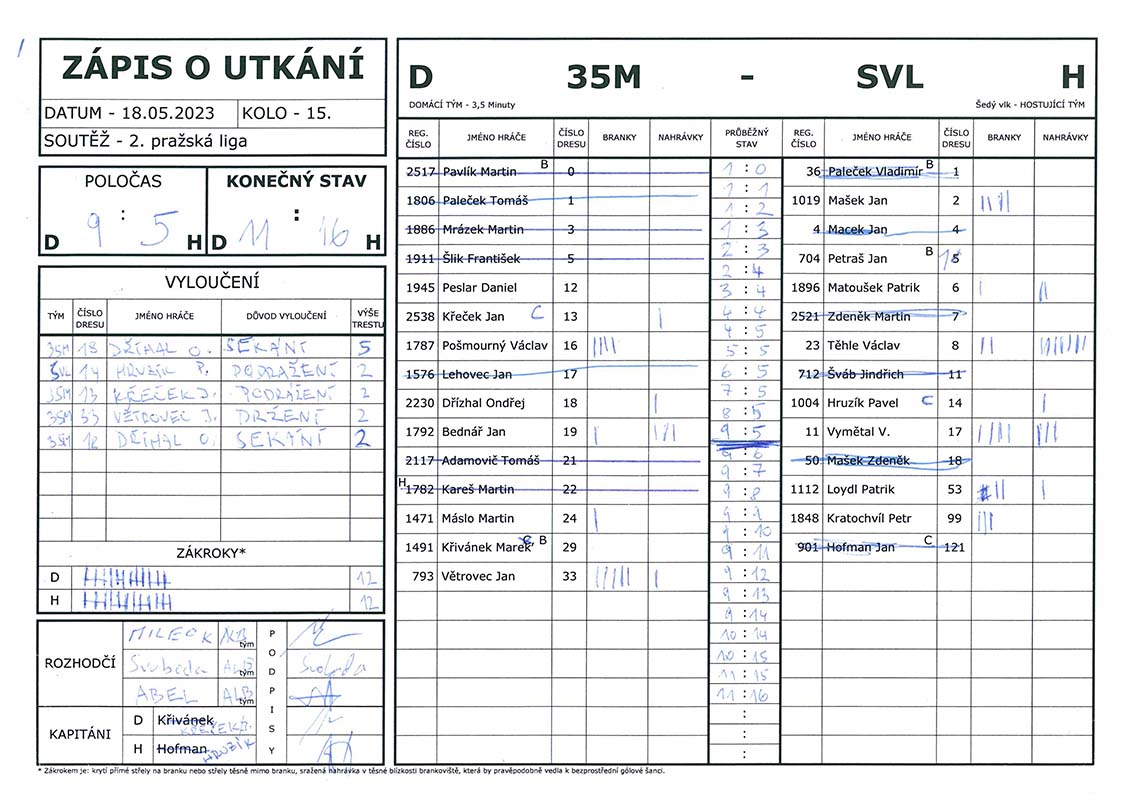 ZÁPIS O UTKÁNÍ
DATUM - 18.05.2023 KOLO - 15.
SOUTĚŽ - 2. pražská liga
POLOČAS KONEČNÝ STAV
D 9 : 5 H D 11 : 16 H
VYLOUČENÍ
TÝM ČÍSLO DRESU JMÉNO HRÁČE DŮVOD VYLOUČENÍ VÝŠE TRESTU
35M 18 O. SEKÁNÍ 5
ŠVL 14 HRUZÍK P. PODRAŽENÍ 2
35M 13 KŘEČEK J. PODRAŽENÍ 2
35M 33 VĚTROVEC J. DRŽENÍ 2
35M O. SEKÁNÍ 2
ZÁKROKY*
D 12
H 12
ROZHODČÍ
MILECK tým
Svoboda tým Svoboda
ABEL ALB tým
PODPISY
KAPITÁNI
D Křivánek KŘEČEK J.
H Hofman HRUZÍK
D 35M - SVL H
DOMÁCÍ TÝM - 3,5 Minuty Šedý vlk - HOSTUJÍCÍ TÝM
REG. ČÍSLO JMÉNO HRÁČE ČÍSLO DRESU BRANKY NAHRÁVKY PRŮBĚŽNÝ STAV REG. ČÍSLO JMÉNO HRÁČE ČÍSLO DRESU BRANKY NAHRÁVKY
2517 Pavlík Martin B 0
1806 Paleček Tomáš 1
1886 Mrázek Martin 3
1911 Šlik František 5
1945 Peslar Daniel 12
2538 Křeček Jan C 13 |
1787 Pošmourný Václav 16 ||||
1576 Lehovec Jan 17
2230 Dřízhal Ondřej 18 |
1792 Bednář Jan 19 | |||
2117 Adamovič Tomáš 21
H 1782 Kareš Martin 22
1471 Máslo Martin 24 |
1491 Křivánek Marek C, B 29
793 Větrovec Jan 33 ||||| |
1 : 0
1 : 1
1 : 2
1 : 3
2 : 3
2 : 4
3 : 4
4 : 4
4 : 5
5 : 5
6 : 5
7 : 5
8 : 5
9 : 5
9 : 6
9 : 7
9 : 8
9 : 9
9 : 10
9 : 11
9 : 12
9 : 13
9 : 14
10 : 14
10 : 15
11 : 15
11 : 16
:
:
:
36 Paleček Vladimír B 1
1019 Mašek Jan 2 ||||
4 Macek Jan 4
704 Petraš Jan B 5
1896 Matoušek Patrik 6 | ||
2521 Zdeněk Martin 7
23 Těhle Václav 8 ||
712 Šváb Jindřich 11
1004 Hruzík Pavel C 14 |
11 Vymětal V. 17 ||||| |||
50 Mašek Zdeněk 18
1112 Loydl Patrik 53 || |
1848 Kratochvíl Petr 99 |||
901 Hofman Jan C 121
* Zákrokem je: krytí přímé střely na branku nebo střely těsně mimo branku, sražená nahrávka v těsné blízkosti brankoviště, která by pravěpodobně vedla k bezprostřední gólové šanci.